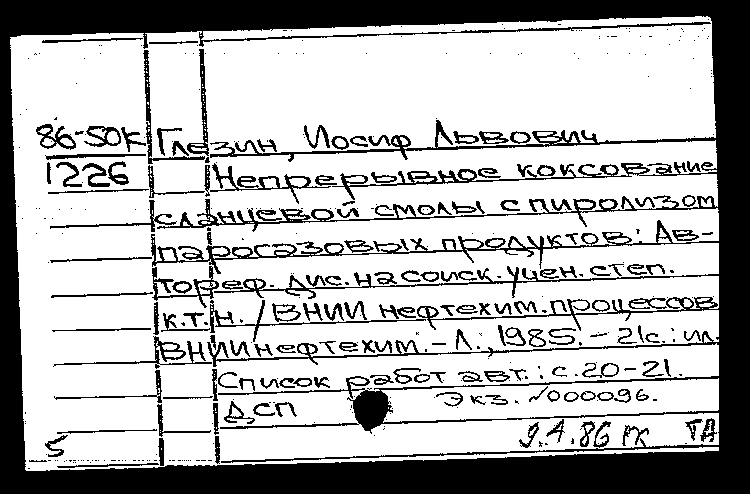 86-50К Глезин, Иосиф Львович
1226 Непрерывное коксование
сланцевой смолы с пиролизом
парогазовых продуктов: Ав-
тореф. дис. на соиск. учен. степ.
к.т.н. / ВНИИ нефтехим. процессов
ВНИИнефтехим. - Л., 1985. - 21с.: ил.
Список работ авт.: с. 20-21.
ДСП Экз. №000096.
5 9.4.86 РК ТА